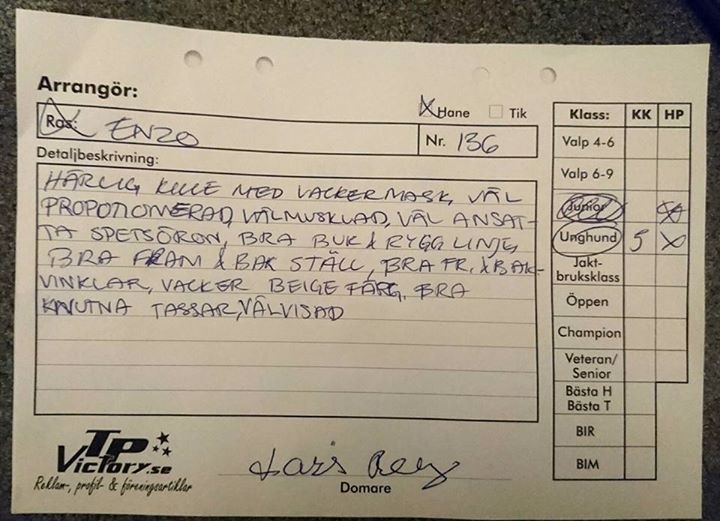 Arrangör:
Hane Tik
Ras: ENZO
Nr. 136
Detaljbeskrivning:
HÄRLIG KILLE MED VACKER MASK, VÄL
PROPOTIONERAD, VÄLMUSKLAD, VÄL ANSAT-
TA SPETSÖRON, BRA BUK & RYGG LINJE,
BRA FRAM & BAK STÄLL, BRA FR. & BAK-
VINKLAR, VACKER BEIGE FÄRG, BRA
KNUTNA TASSAR, VÄLVISAD
Klass: KK HP
Valp 4-6
Valp 6-9
Junior
Unghund 5 X
Jakt-
bruksklass
Öppen
Champion
Veteran/
Senior
Bästa H
Bästa T
BIR
BIM
TP
Victory.se
Reklam-, profil- & föreningsartiklar
Lars
Domare